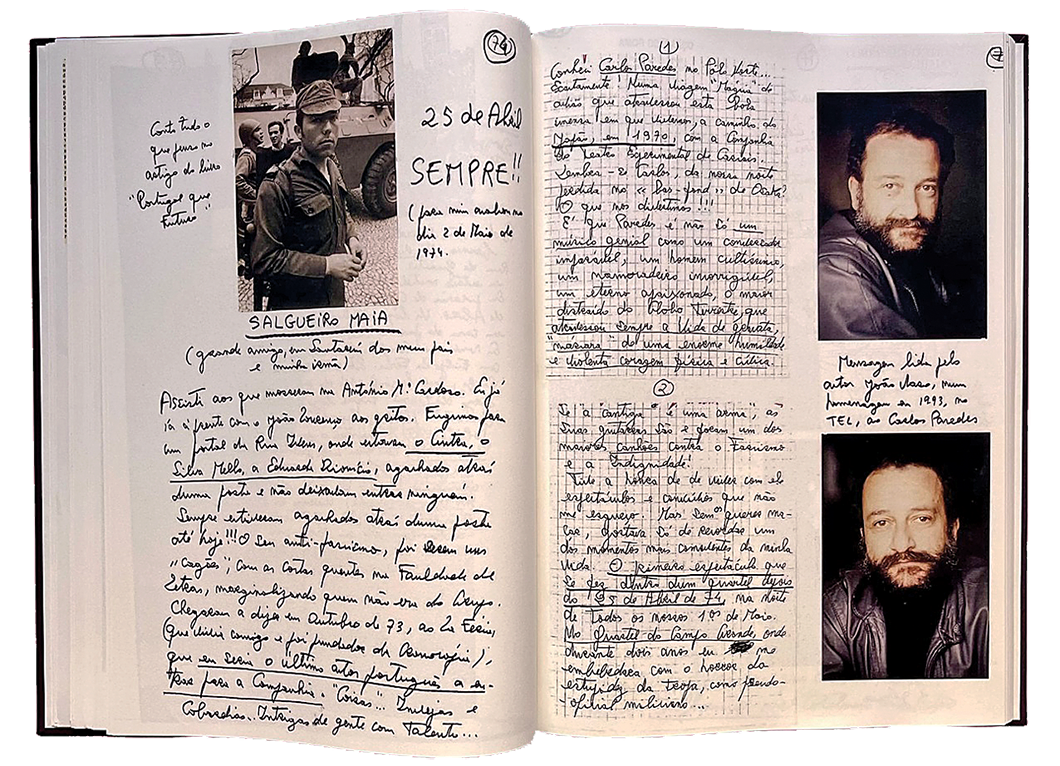 74
Conto tudo o
que penso no
artigo do livro
"Portugal que
Futuro"
25 de Abril
SEMPRE!!
(para mim
dia 2 de Maio de
1974.
SALGUEIRO MAIA
(grande amigo, em Santarém dos meus pais
e minha irmã)
Assisti aos que morreram na António Mª Cardoso. Eu já
ia à frente com o João Lourenço aos gritos. Fugimos para
um portal da Rua, onde estavam o Cintra, o
Silva Mello, a Eduarda Dionísio, agachados atrás
duma porta e não deixaram entrar ninguém.
Sempre estiveram agachados atrás duma porta
até hoje!!! O seu anti-fascismo, foi serem uns
"cagões", com as costas quentes na Faculdade de
Letras, marginalizando quem não era do Grupo.
Chegaram a dizer em Outubro de 73, ao Zé
(que vivia comigo e foi fundador da Cornucópia),
que eu seria o último actor português a en-
trar para a Companhia. "Coisas"... Invejas e
Cobardias... Intrigas de gente com Talento...
1
Conheci Carlos Paredes no Pólo Norte...
Exactamente! Numa viagem "Mágica" de
avião que atravessou esta bola
imensa em que vivemos, a caminho do
Japão, em 1970, com a Companhia
do Teatro Experimental de Cascais.
Lembras-te Carlos, da nossa noite
perdida no «bas-fond» de Osaka?
O que nos divertimos!!!
É que Paredes e não só um
músico genial como um conversador
imparável, um homem cultíssimo,
um namoradeiro incorrigível,
um eterno apaixonado, o maior
distraído do Globo Terrestre, que
atravessou sempre a vida de gravata,
"máscara" de uma enorme humildade
e violenta coragem física e cívica.
2
Se "a cantiga" é uma arma", as
suas guitarras são e foram um dos
maiores canhões contra o Fascismo
e a Indignidade!
Tive a honra de viver com ele
espectáculos e convívios que não
me esqueço. Mas sem querer ma-
çar, gostava só de recordar um
dos momentos mais comoventes da minha
vida. O primeiro espectáculo que
se fez dentro dum quartel depois
do 25 de Abril de 74, na noite
de todos os nossos 1.os de Maio.
No Quartel do Campo Grande, onde
durante dois anos eu me
embebedara com o horror da
estupidez da tropa, como pseudo-
oficial miliciano...
7
Mensagem lida pelo
actor João Vasco, numa
homenagem em 1993, no
TEC, ao Carlos Paredes